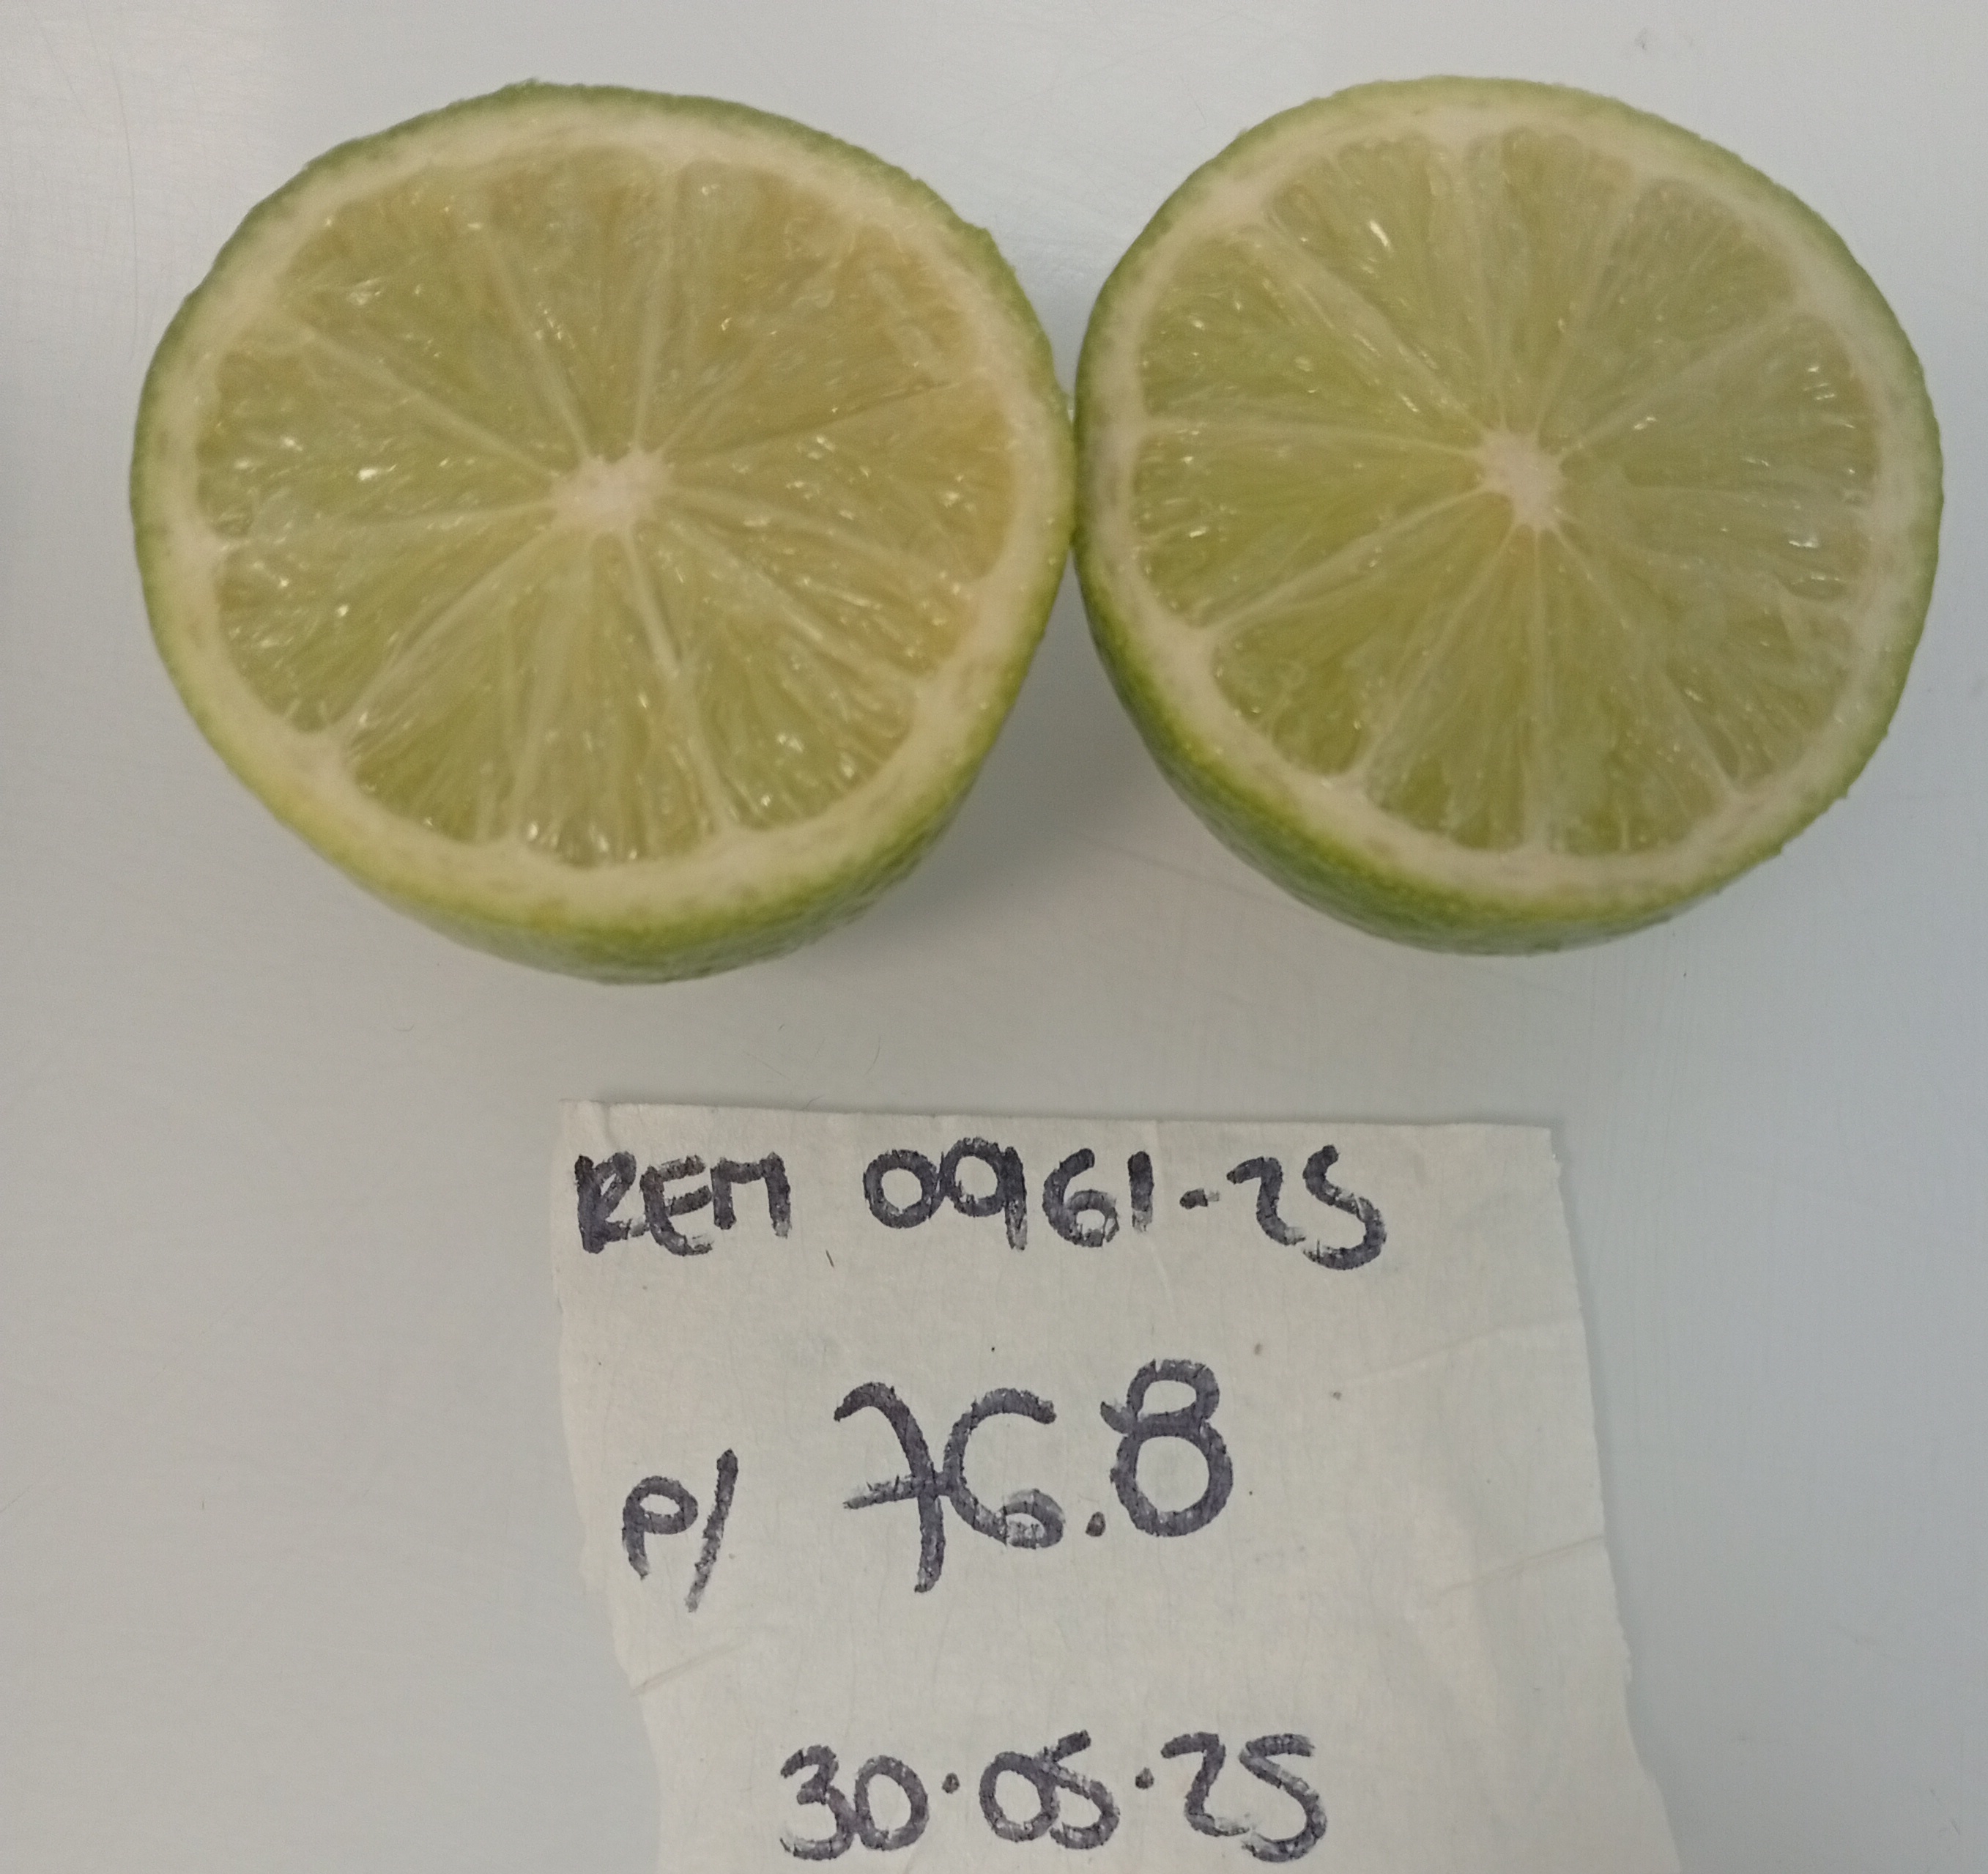 REM 0961-25
P/ 76.8
30.05.25